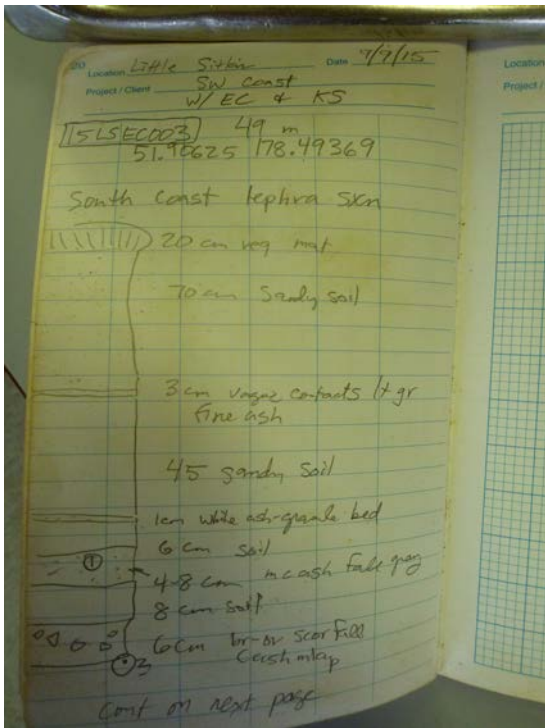 20 Location Little Sitkin Date 7/7/15
Project / Client SW Coast
W/ EC & KS
15LSEC003 49 m
51.90625 178.49369
South Coast tephra sxn
20 cm veg mat
70 cm Sandy soil
3 cm vague contacts lt gr
fine ash
45 sandy soil
1cm white ash-granule bed
6 cm soil
1
4-8 cm mc ash fall gray
8 cm soil
6 cm br-or scor fall
3
Cont on next page
Location
Project /